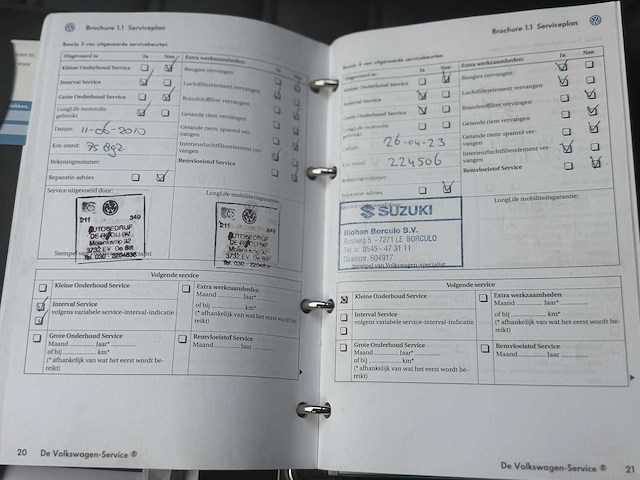 Brochure 1.1 Serviceplan
Bewijs 3 van uitgevoerde servicebeurten
Uitgevoerd in: Ja Nee
Kleine Onderhoud Service
Interval Service
Grote Onderhoud Service
LongLife motorolie gebruikt
Datum: 11-06-2010
Km-stand: 75892
Rekeningnummer:
Reparatie-advies
Extra werkzaamheden: Ja Nee
Bougies vervangen
Luchtfilterelement vervangen
Brandstoffilter vervangen
Getande riem vervangen
Getande riem: spanrol vervangen
Interieurluchtfilterelement vervangen
Remvloeistof Service
Service uitgevoerd door:
LongLife mobiliteitsgarantie:
211 349
AUTOBEDRIJF
Molenkamp 32
3732 EV De Bilt
Tel. 030 - 2204838
211 349
AUTOBEDRIJF
Molenkamp 32
3732 EV De Bilt
Tel. 030
Volgende service
Kleine Onderhoud Service
Interval Service
volgens variabele service-interval-indicatie
Grote Onderhoud Service
Maand Jaar*
of bij km*
(* afhankelijk van wat het eerst wordt bereikt)
Extra werkzaamheden
Maand Jaar*
of bij km*
(* afhankelijk van wat het eerst wordt bereikt)
Remvloeistof Service
Maand Jaar
20 De Volkswagen-Service ®
Brochure 1.1 Serviceplan
Bewijs 4 van uitgevoerde servicebeurten
Ja Nee
Kleine Onderhoud Service
Interval Service
Grote Onderhoud Service
LongLife motorolie gebruikt
26-04-23
224506
Reparatie-advies
Extra werkzaamheden: Ja Nee
Bougies vervangen
Luchtfilterelement vervangen
Brandstoffilter vervangen
Getande riem vervangen
Getande riem: spanrol vervangen
Interieurluchtfilterelement vervangen
Remvloeistof Service
LongLife mobiliteitsgarantie:
SUZUKI
Blohan Borculo B.V.
5 - 7271 LE BORCULO
Tel. nr. 0545 - 47 31 11
Dealernr. 604917
Stempel van Volkswagen-specialist
Volgende service
Kleine Onderhoud Service
Interval Service
volgens variabele service-interval-indicatie
Grote Onderhoud Service
Maand Jaar*
of bij km*
(* afhankelijk van wat het eerst wordt bereikt)
Extra werkzaamheden
Maand Jaar*
of bij km*
(* afhankelijk van wat het eerst wordt bereikt)
Remvloeistof Service
Maand Jaar
De Volkswagen-Service ® 21